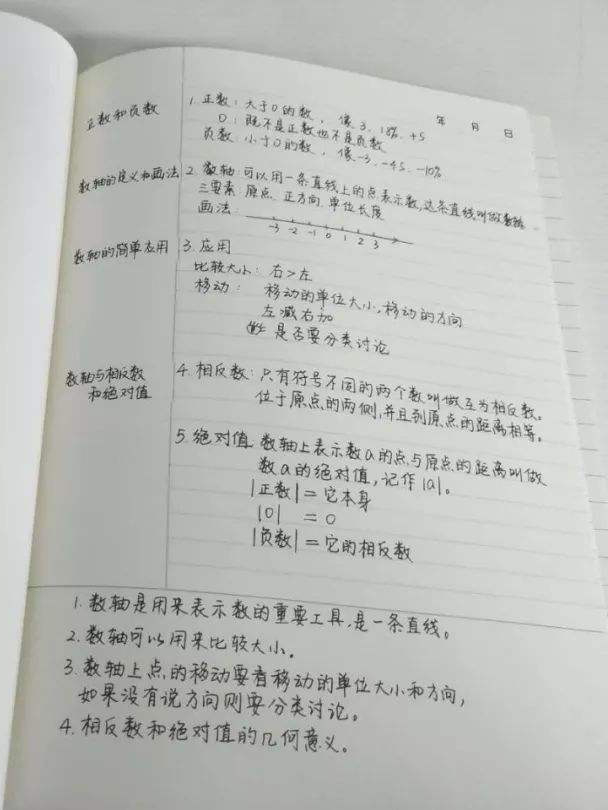 年 月 日
正数和负数
1. 正数：大于0的数，像3，18%，+5
0：既不是正数也不是负数
负数：小于0的数，像-3，-45，-10%
数轴的定义和画法
2. 数轴：可以用一条直线上的点表示数，这条直线叫做数轴
三要素：原点 正方向 单位长度
画法：
-3 -2 -1 0 1 2 3
数轴的简单应用
3. 应用
比较大小：右>左
移动：移动的单位大小，移动的方向
左减右加
是否要分类讨论
数轴与相反数
和绝对值
4. 相反数：只有符号不同的两个数叫做互为相反数。
位于原点的两侧，并且到原点的距离相等。
5. 绝对值 数轴上表示数a的点与原点的距离叫做
数a的绝对值，记作|a|。
|正数|=它本身
|0| =0
|负数|=它的相反数
1. 数轴是用来表示数的重要工具，是一条直线。
2. 数轴可以用来比较大小。
3. 数轴上点的移动要看移动的单位大小和方向，
如果没有说方向则要分类讨论。
4. 相反数和绝对值的几何意义。